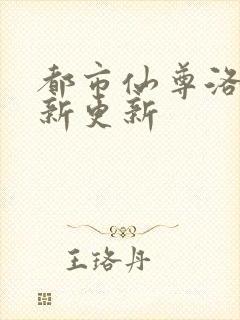 都市仙尊洛
新更新
王珞丹